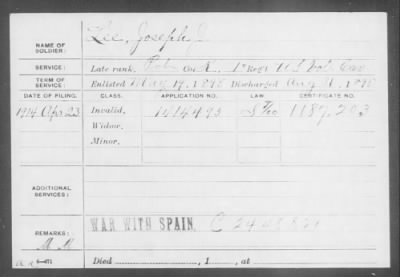 Lee, Joseph J.
NAME OF SOLDIER:
SERVICE: Late rank, Co. K, 1st Reg't U S Vol. Cav
TERM OF SERVICE: Enlisted May 19, 1898 Discharged Aug 1898
DATE OF FILING. CLASS. APPLICATION NO. LAW. CERTIFICATE NO.
1914 Apr 23 Invalid, 1414493 1189.203
Widow,
Minor,
ADDITIONAL SERVICES:
WAR WITH SPAIN. C
REMARKS:
Died , 1 , at